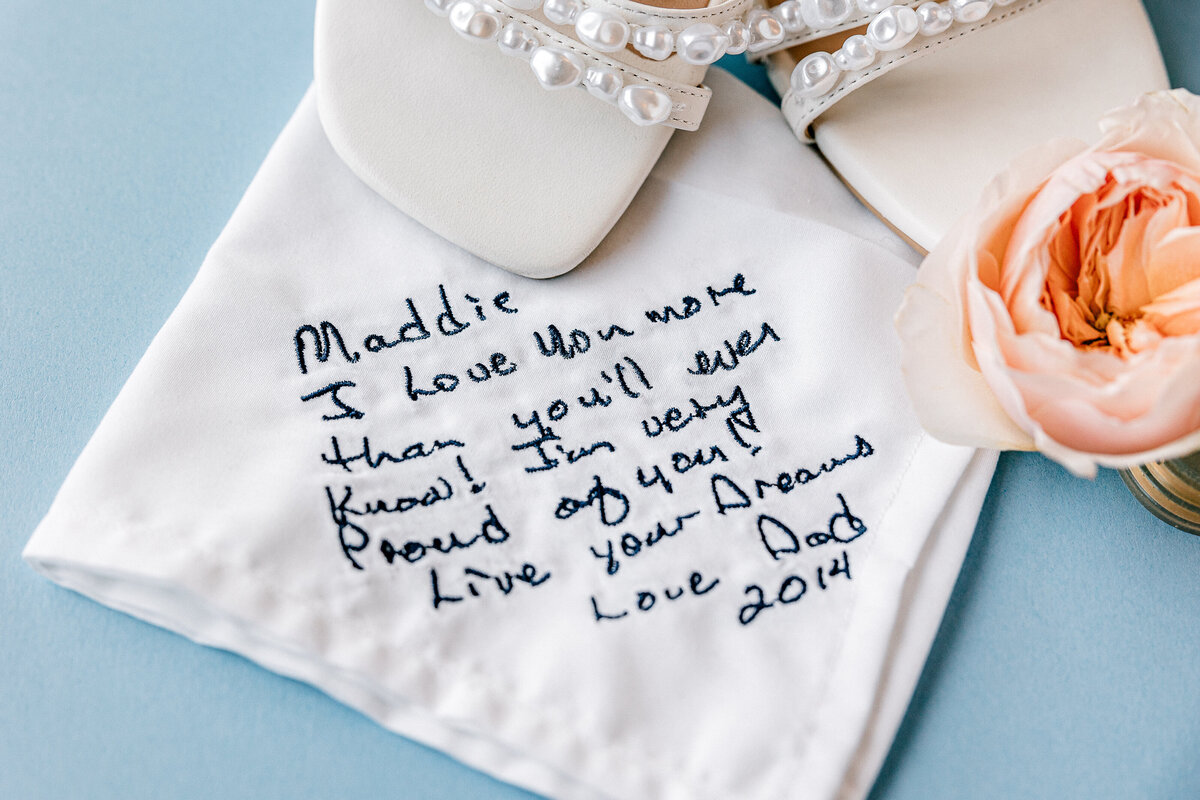 Maddie
I Love you more
than you'll ever
Know! I'm very
Proud of you!
Live your Dreams
Love Dad
2014